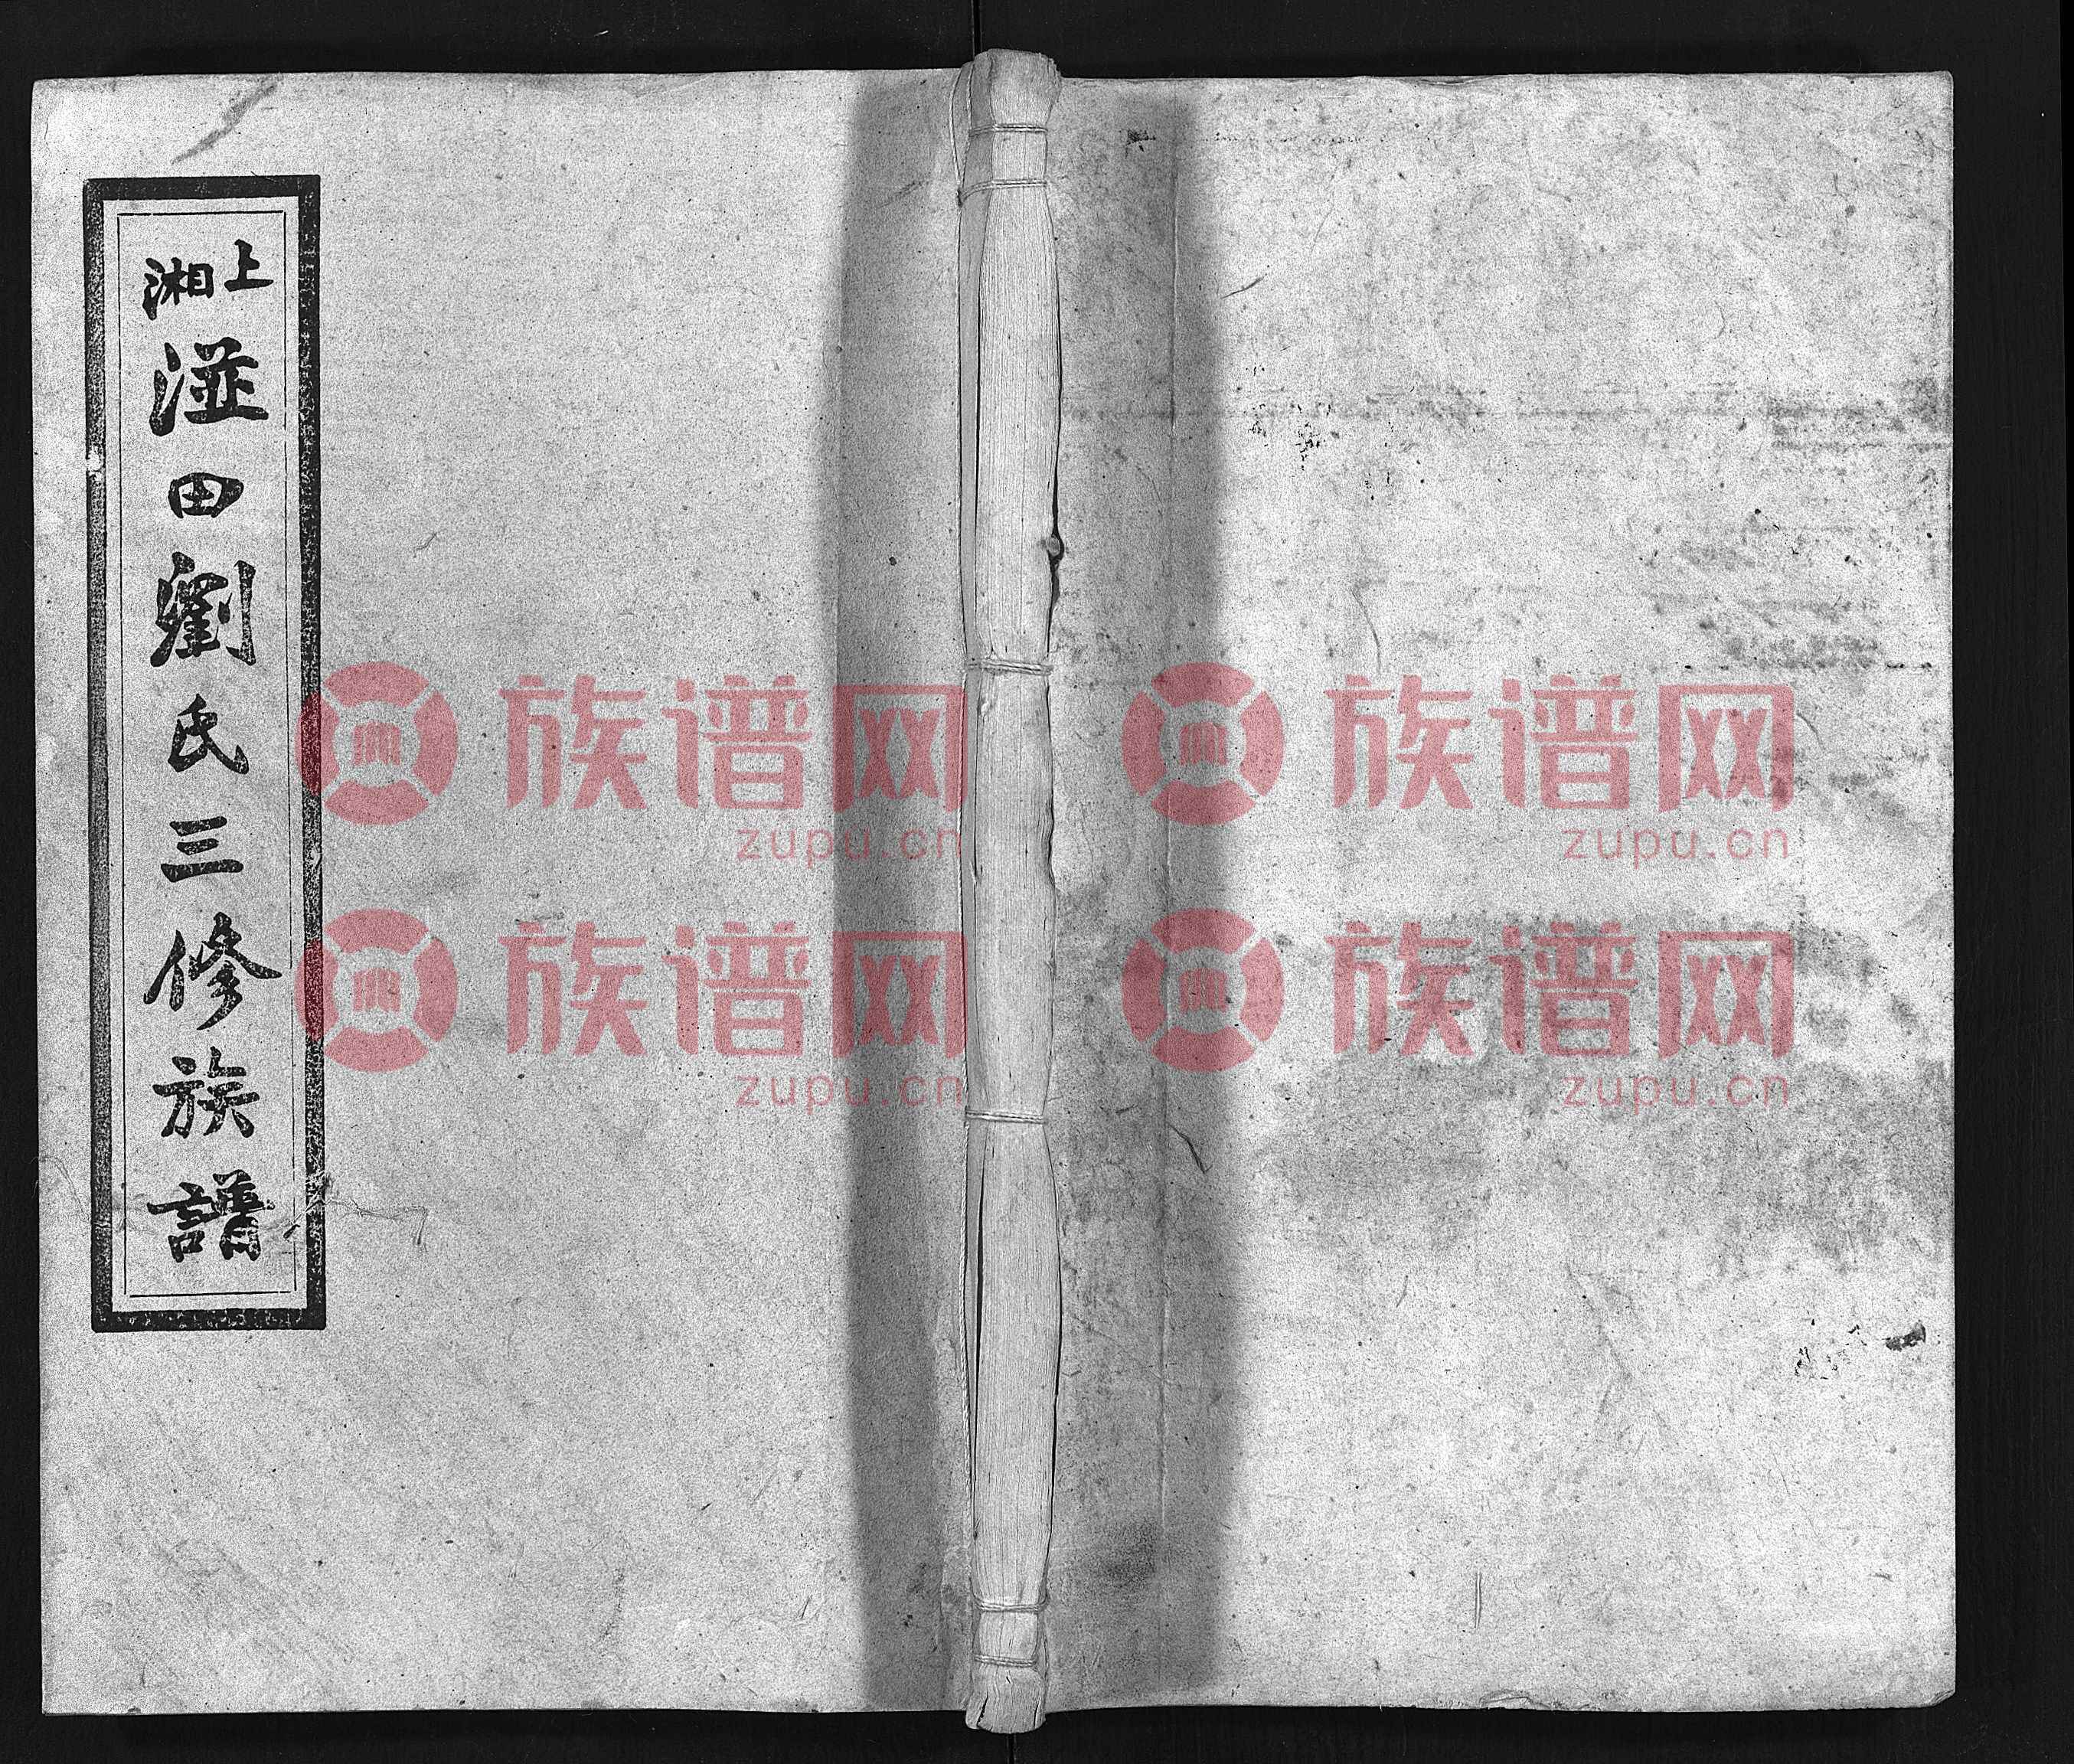 上湘
湴田劉氏三修族譜
族谱网 zupu.cn
族谱网 zupu.cn
族谱网 zupu.cn
族谱网 zupu.cn